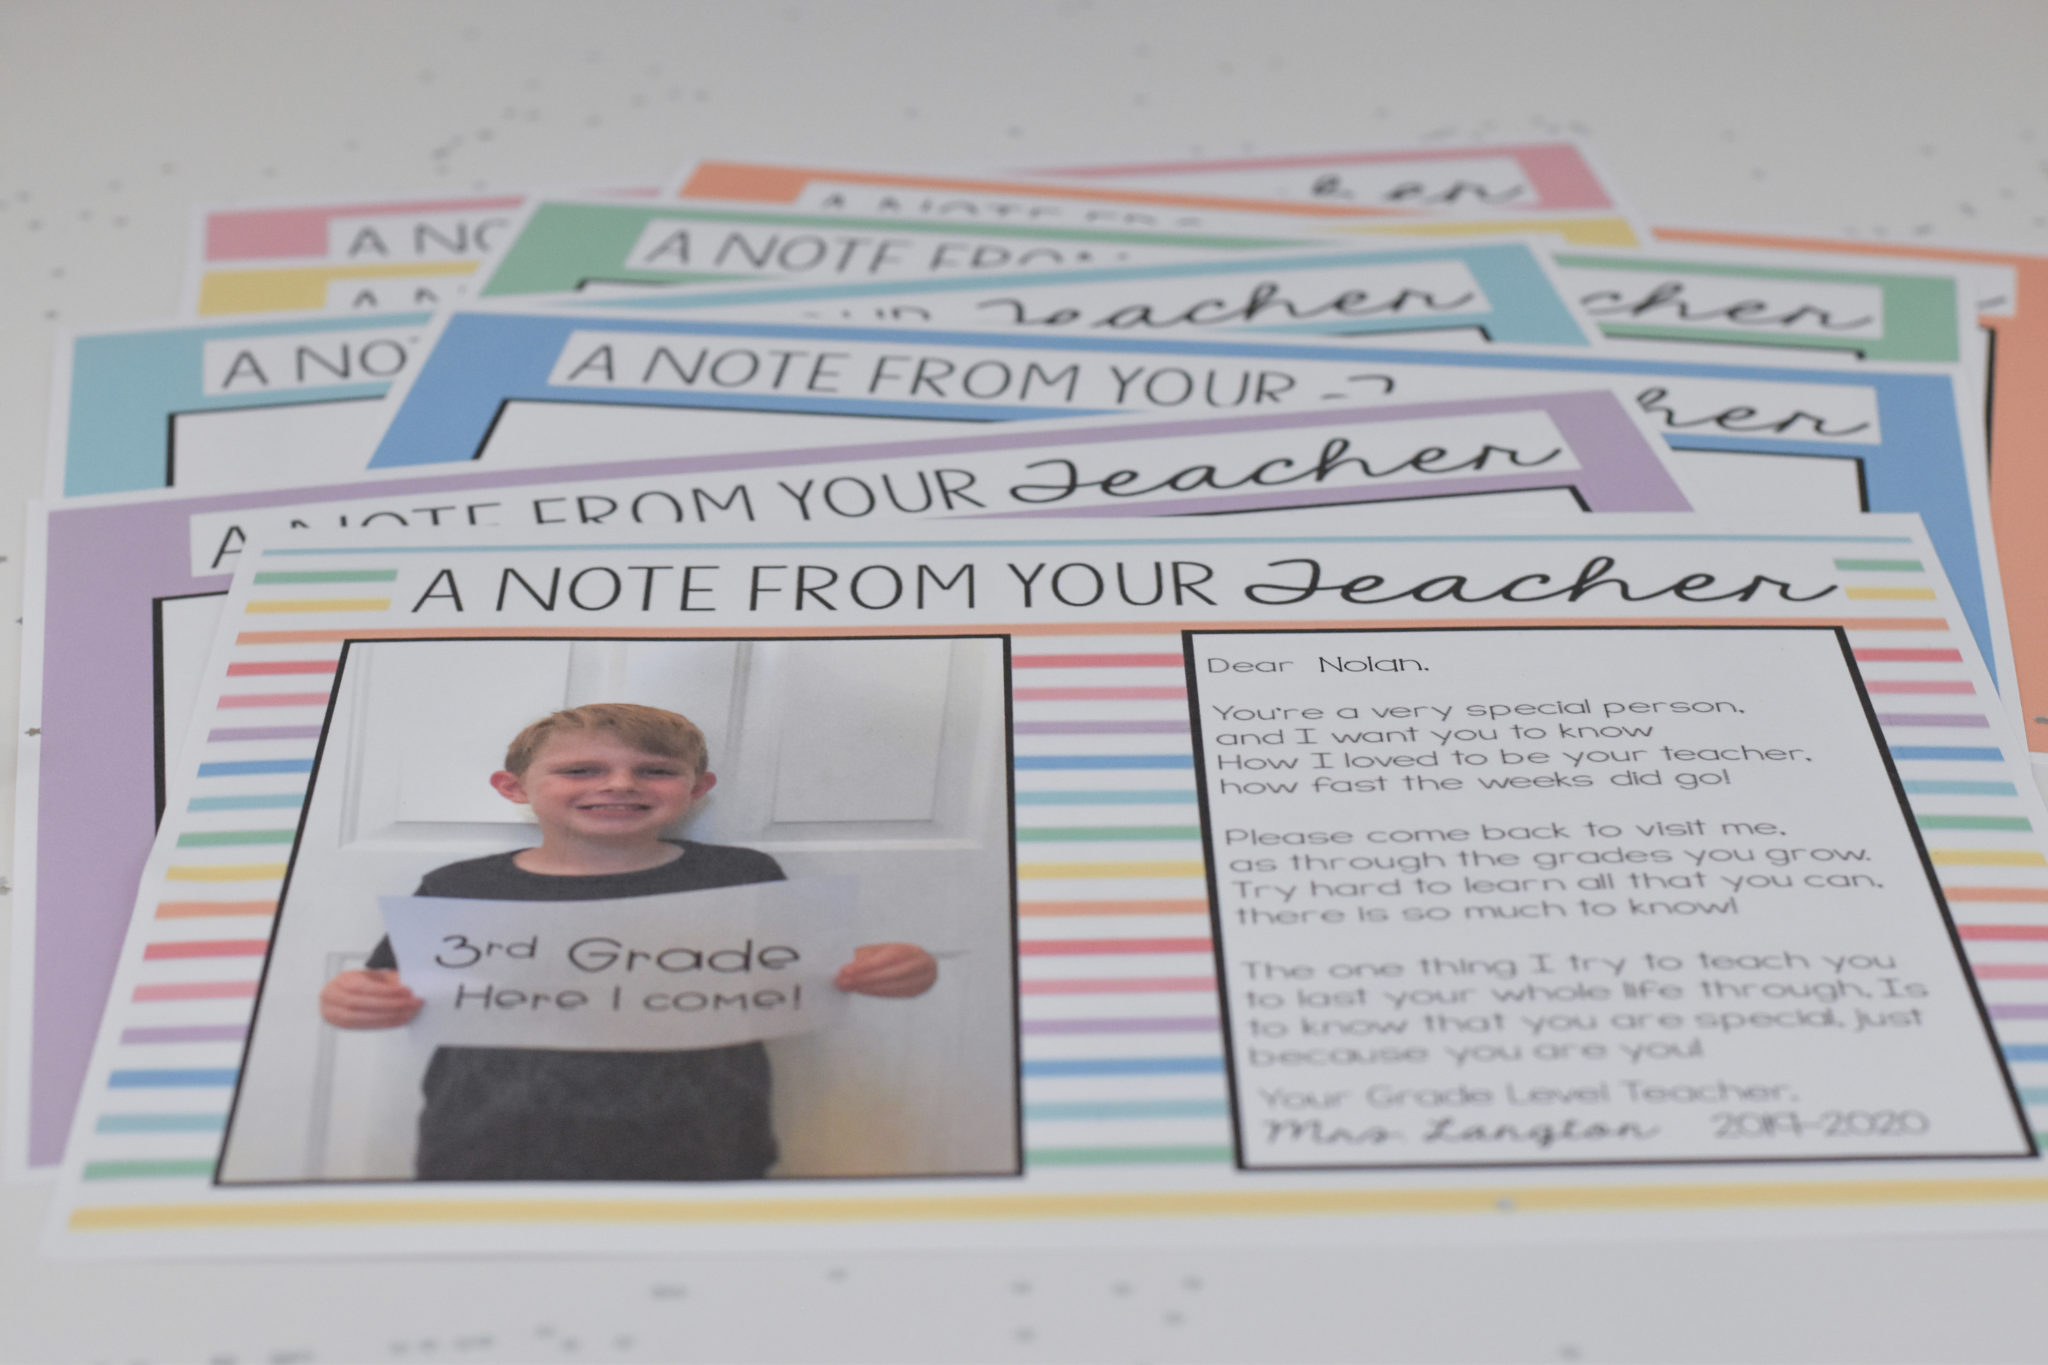 er
A NO
A NOTE FRO
A NOTE FRO
A N
Teacher
cher
A NO
A NOTE FROM YOUR
her
A NOTE FROM YOUR Teacher
A NOTE FROM YOUR Teacher
Dear Nolan,
You're a very special person,
and I want you to know
How I loved to be your teacher,
how fast the weeks did go!
Please come back to visit me,
as through the grades you grow.
Try hard to learn all that you can,
there is so much to know!
The one thing I try to teach you
to last your whole life through, Is
to know that you are special, just
because you are you!
Your Grade Level Teacher,
Mrs. Langton 2019-2020
3rd Grade
Here I come!